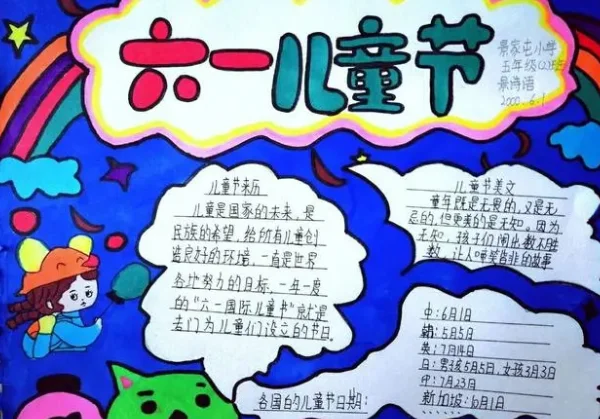 六一儿童节
景家屯小学
五年级(2)班
景诗语
2000.6.1
儿童节来历
儿童是国家的未来，是
民族的希望，给所有儿童创
造良好的环境，一直是世界
各地努力的目标，一年一度
的“六一国际儿童节”就是
专门为儿童们设立的节日。
儿童节美文
童年既是无畏的，又是无
忌的，但更美的是无知。因为
无知，孩子们闹出数不胜
数，让人啼笑皆非的故事
中：6月1日
韩：5月5日
英：7月14日
日：男孩5月5日，女孩3月3日
中：7月23日
新加坡：10月1日
各国的儿童节日期：